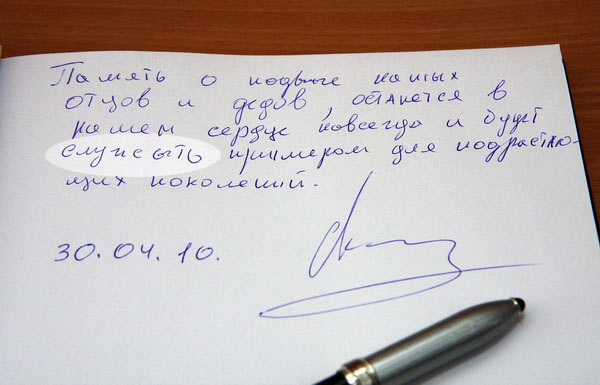 Память о подвиге наших
отцов и дедов, останется в
нашем сердце навсегда и будет
служыть примером для подрастаю-
щих поколений.
30.04.10.